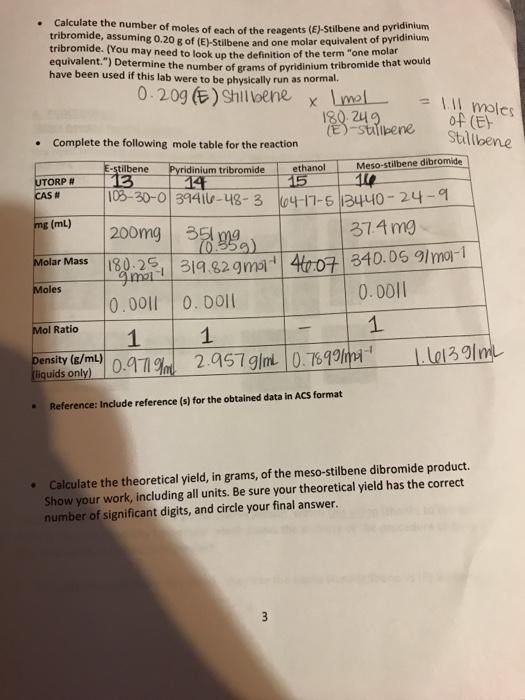 • Calculate the number of moles of each of the reagents (E)-Stilbene and pyridinium
tribromide, assuming 0.20 g of (E)-Stilbene and one molar equivalent of pyridinium
tribromide. (You may need to look up the definition of the term "one molar
equivalent.") Determine the number of grams of pyridinium tribromide that would
have been used if this lab were to be physically run as normal.
0.20g (E) Stillbene x 1mol = 1.11 moles
180.24g of (E)-
(E)-stillbene Stillbene
• Complete the following mole table for the reaction
E-stilbene Pyridinium tribromide ethanol Meso-stilbene dibromide
UTORP # 13 14 15 16
CAS # 103-30-0 39416-48-3 64-17-5 13440-24-9
mg (mL) 200mg 351 mg 37.4mg
(0.35g)
Molar Mass 180.25 319.82gmol-1 46.07 340.05 g/mol-1
gmol-1
Moles 0.0011 0.0011 0.0011
Mol Ratio 1 1 - 1
Density (g/mL) 0.971g/ml 2.957g/ml 0.789g/mol-1 1.613g/mL
(liquids only)
• Reference: Include reference (s) for the obtained data in ACS format
• Calculate the theoretical yield, in grams, of the meso-stilbene dibromide product.
Show your work, including all units. Be sure your theoretical yield has the correct
number of significant digits, and circle your final answer.
3